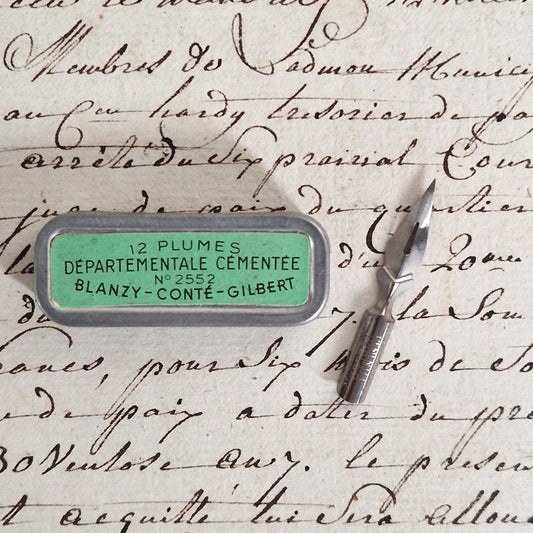 Membres de Ladmon Municip
au Cen hardy tresorier de pa
arrêté du Six prairial Cour
juge de paix du quartier
la
d'un 20me
12 PLUMES
DÉPARTEMENTALE CÉMENTÉE
No 2552
BLANZY-CONTÉ-GILBERT
du
7. la Som
eances, pour Six mois de So
e de paix a dater du pre
30 Ventose au 7. le presen
t acquitté lui Sera alloue